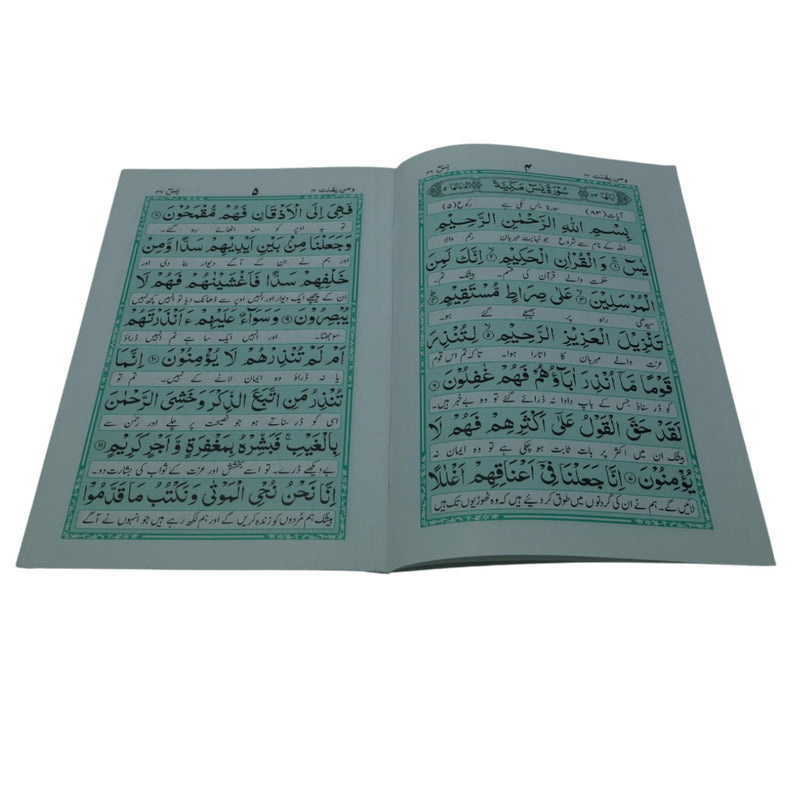 ومن یقنت ۲۲
۴
یٰسٓ ۳۶
سُوْرَةُ يٰسٓ مَكِّيَّةٌ
آیات (۸۳) سورۃ یٰس مکی ہے رکوع (۵)
بِسْمِ اللهِ الرَّحْمٰنِ الرَّحِيْمِ
اللہ کے نام سے شروع جو نہایت مہربان رحم والا
يٰسٓ ۚ﴿۱﴾ وَالْقُرْاٰنِ الْحَكِيْمِ ۙ﴿۲﴾ اِنَّكَ لَمِنَ
حکمت والے قرآن کی قسم۔ بیشک تم
الْمُرْسَلِيْنَ ۙ﴿۳﴾ عَلٰى صِرَاطٍ مُّسْتَقِيْمٍ ؕ﴿۴﴾
سیدھی راہ پر بھیجے گئے ہو۔
تَنْزِيْلَ الْعَزِيْزِ الرَّحِيْمِ ۙ﴿۵﴾ لِتُنْذِرَ
عزت والے مہربان کا اتارا ہوا۔ تاکہ تم اس قوم
قَوْمًا مَّاۤ اُنْذِرَ اٰبَآؤُهُمْ فَهُمْ غٰفِلُوْنَ ﴿۶﴾
کو ڈر سناؤ جس کے باپ دادا نہ ڈرائے گئے تو وہ بے خبر ہیں۔
لَقَدْ حَقَّ الْقَوْلُ عَلٰۤى اَكْثَرِهِمْ فَهُمْ لَا
بیشک ان میں اکثر پر بات ثابت ہو چکی ہے تو وہ ایمان نہ
يُؤْمِنُوْنَ ﴿۷﴾ اِنَّا جَعَلْنَا فِيْۤ اَعْنَاقِهِمْ اَغْلٰلًا
لائیں گے۔ ہم نے ان کی گردنوں میں طوق کر دیئے ہیں کہ وہ ٹھوڑیوں تک ہیں
ومن یقنت ۲۲
۵
یٰسٓ ۳۶
فَهِيَ اِلَى الْاَذْقَانِ فَهُمْ مُّقْمَحُوْنَ ﴿۸﴾
تو یہ اوپر کو منہ اٹھائے رہ گئے۔
وَجَعَلْنَا مِنْۢ بَيْنِ اَيْدِيْهِمْ سَدًّا وَّمِنْ
اور ہم نے ان کے آگے دیوار بنا دی اور
خَلْفِهِمْ سَدًّا فَاَغْشَيْنٰهُمْ فَهُمْ لَا
ان کے پیچھے ایک دیوار اور انہیں اوپر سے ڈھانک دیا تو انہیں کچھ نہیں
يُبْصِرُوْنَ ﴿۹﴾ وَسَوَآءٌ عَلَيْهِمْ ءَاَنْذَرْتَهُمْ
سوجھتا۔ اور انہیں ایک سا ہے تم انہیں ڈراؤ
اَمْ لَمْ تُنْذِرْهُمْ لَا يُؤْمِنُوْنَ ﴿۱۰﴾ اِنَّمَا
یا نہ ڈراؤ وہ ایمان لانے کے نہیں۔ تم تو
تُنْذِرُ مَنِ اتَّبَعَ الذِّكْرَ وَخَشِيَ الرَّحْمٰنَ
اسی کو ڈر سناتے ہو جو نصیحت پر چلے اور رحمٰن سے
بِالْغَيْبِ ۚ فَبَشِّرْهُ بِمَغْفِرَةٍ وَّاَجْرٍ كَرِيْمٍ ﴿۱۱﴾
بے دیکھے ڈرے۔ تو اسے بخشش اور عزت کے ثواب کی بشارت دو۔
اِنَّا نَحْنُ نُحْيِ الْمَوْتٰى وَنَكْتُبُ مَا قَدَّمُوْا
بیشک ہم مُردوں کو زندہ کریں گے اور ہم لکھ رہے ہیں جو انہوں نے آگے